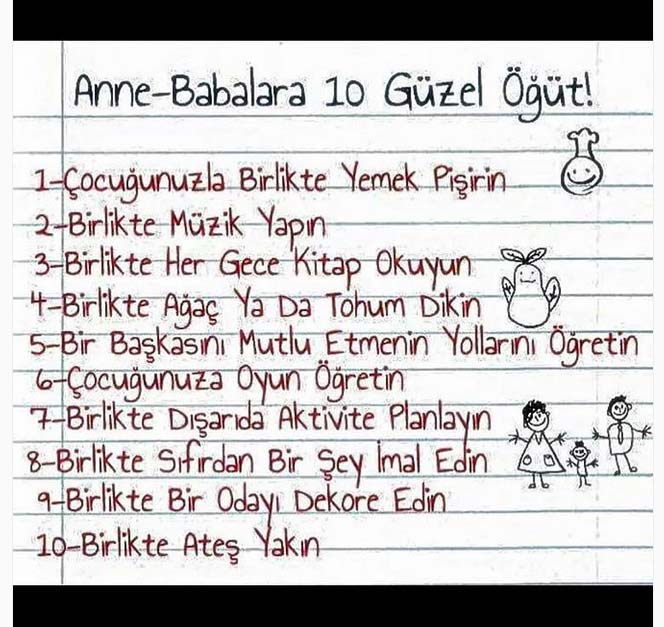 Anne-Babalara 10 Güzel Öğüt!
1-Çocuğunuzla Birlikte Yemek Pişirin
2-Birlikte Müzik Yapın
3-Birlikte Her Gece Kitap Okuyun
4-Birlikte Ağaç Ya Da Tohum Dikin
5-Bir Başkasını Mutlu Etmenin Yollarını Öğretin
6-Çocuğunuza Oyun Öğretin
7-Birlikte Dışarıda Aktivite Planlayın
8-Birlikte Sıfırdan Bir Şey İmal Edin
9-Birlikte Bir Odayı Dekore Edin
10-Birlikte Ateş Yakın